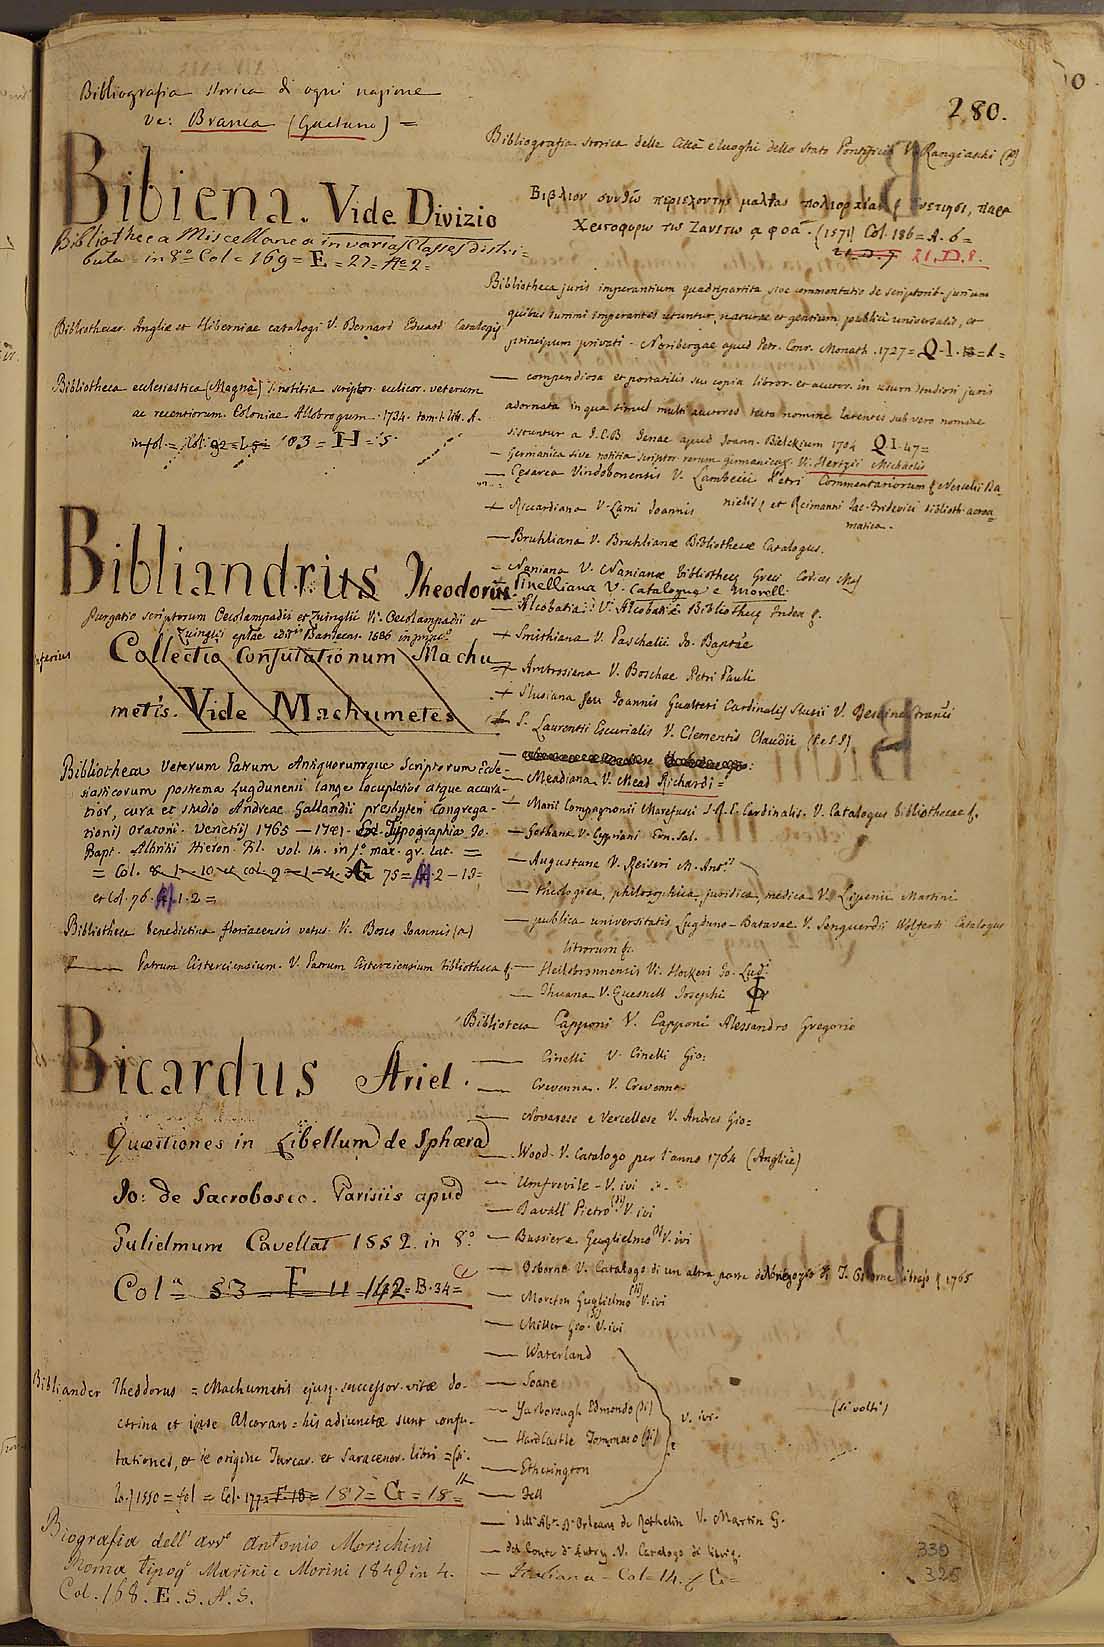 280.
Bibliografia storica di ogni nazione
ve: Branca (Gaetano) =
Bibiena. Vide Divizio
Bibliotheca Miscellanea in varias Classes distri-
buta in 8º Col = 169 = E = 27 =
Bibliothecar. Angliæ et Hiberniae catalogi V. Bernard Eduard Catalogus
Bibliotheca ecclesiastica (Magna) notitia scriptor. ecclicor. veterum
ac recentiorum. Coloniae Allobrogum. 1734. tom. 1. litt. A.
in fol = 83 = H = 5.
Bibliandrus Theodorus.
Purgatio scriptorum Oecolampadii et Zuinglii Vi. Oecolampadii et
Zuinglii eplae
Collectio Confutationum Machu
metis. Vide Machumetes
Bibliotheca Veterum Patrum Antiquorumque Scriptorum Eccle-
siasticorum postrema Lugdunensi longe locupletior atque accura-
tior, cura et studio Andreae Gallandii presbyteri Congrega-
tionis Oratorii. Venetiis 1765 — 1781. Typographia Jo.
Bapt. Albritii Hieron. Fil. vol. 14. in fº max. gr. lat. =
= Col. 75 = 2 – 13 =
et Col. 76. 1. 2 =
Bibliotheca benedictina floriacensis vetus. Vi. Bosco Joannis (a)
— Patrum Cisterciensium. V. Patrum Cisterciensium bibliotheca &.
Bicardus Ariel.
Quæstiones in Libellum de Sphæra
Jo: de Sacrobosco. Parisiis apud
Gulielmum Cavellat 1552. in 8.º
Col.ª 53 F 11 142 = B. 34 =
Bibliander Theodorus = Machumetis ejusq. successor. vitæ do-
ctrina et ipse Alcoran = his adiunctæ sunt confu-
tationes, et de origine Turcar. et Saracenor. libri =
1550 = fol = Col. 177 = F 18 = 187 = G = 18 =
Biografia dell' avvº Antonio Morichini
Roma tipogª Marini e Morini 1849 in 4.
Col. 168. E. S. N. 5.
Bibliografia storica delle Città e luoghi dello Stato Pontificio V. Rangiaschi
Βιβλιον περιεχοντης μαλτας πολιορκίαν παρα
Χριστοφορω τω Ζανετω α φοα. (1571) Col. 186 = A. 6 =
21. D. 8.
Bibliotheca juris imperantium quadripartita sive commentatio de scriptorib. jurium
quibus summi imperantes utuntur, naturae et gentium publici universalis, et
principum privati - Noribergae apud Petr. Conr. Monath. 1727 = Q-1.
— compendiosa et portatilis seu copia libror. et auctor. in usum studiosi juris
adornata in qua simul multi auctores tecto nomine latentes sub vero nomine
sistuntur a J. C. B. Jenae apud Joann. Bielckium 1704 Q 1. 47 =
— Germanica sive notitia scriptor. rerum germanicar. Vi. Hertzii Michaelis
— Cesarea Vindobonensis V. Lambecii Petri Commentariorum & Nesselii Da-
nielis & et Reimanni Jac. Friderici Biblioth. acroa-
matica.
— Riccardiana V. Lami Joannis
— Bruhliana V. Bruhlianæ Bibliothecæ Catalogus.
— Naniana V. Nanianæ bibliothecę Gręci Codices Mss
— Pinelliana V. Catalogus e Morelli
— Alcobatia: V. Alcobatiæ Bibliothecę Index &.
+ Smithiana V. Paschalii Jo. Baptæ
+ Ambrosiana V. Boschae Petri Pauli
+ Slusiana seu Joannis Gualteri Cardinalis Slusii V. Deseine Franci
+ S. Laurentii Escurialis V. Clementis Claudii
— Meadiana V. Mead Richardi =
— Marii Compagnonii Marefusci S. R. E. Cardinalis. V. Catalogus bibliothecae &.
— Gothana V. Cypriani Ern. Sal.
— Augustana V. Reiseri M. Ant.ii
— theologica, philosophica, juridica, medica V. Lipenii Martini
— publica universitatis Lugduno-Batavae V. Senguerdii Wolferdi Catalogus
librorum &.
— Heilsbronnensis Vi. Hockeri Jo. Lud.
— Thuana V. Quesnell Josephi
Biblioteca Capponi V. Capponi Alessandro Gregorio
— Cinelli V. Cinelli Gio:
— Crevenna. V. Crevenna.
— Novarese e Vercellese V. Andres Gio =
— Wood. V. Catalogo per l'anno 1764 (Anglicè)
— Umfrevile - V. ivi
— Davall Pietro V. ivi
— Bussiere Guglielmo V. ivi
— Osborne V. Catalogo di un altra parte di T. Osborne 1765
— Moreton Guglielmo V. ivi
— Miller Geo. V. ivi
— Waterland
— Soane
— Yarborough Edmondo (di)
— Hardcastle Tommaso (di)
V. ivi.
— Etherington
— Fell
(si volti)
— dell' Ab. D'Orleans de Rothelin V. Martin G.
— del Conte d'Autry. V. Catalogo di
— Italiana - Col = 14. G =
330
325